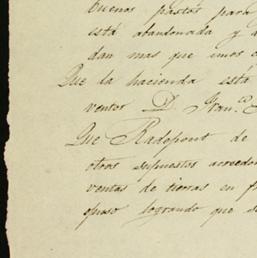 buenos pastos para
está abandonada y a
dan mas que unos c
Que la hacienda está
ventor D. Fran.co
Que Radepont de
otros supuestos acreedor
ventas de tierras en f
opuso logrando que s